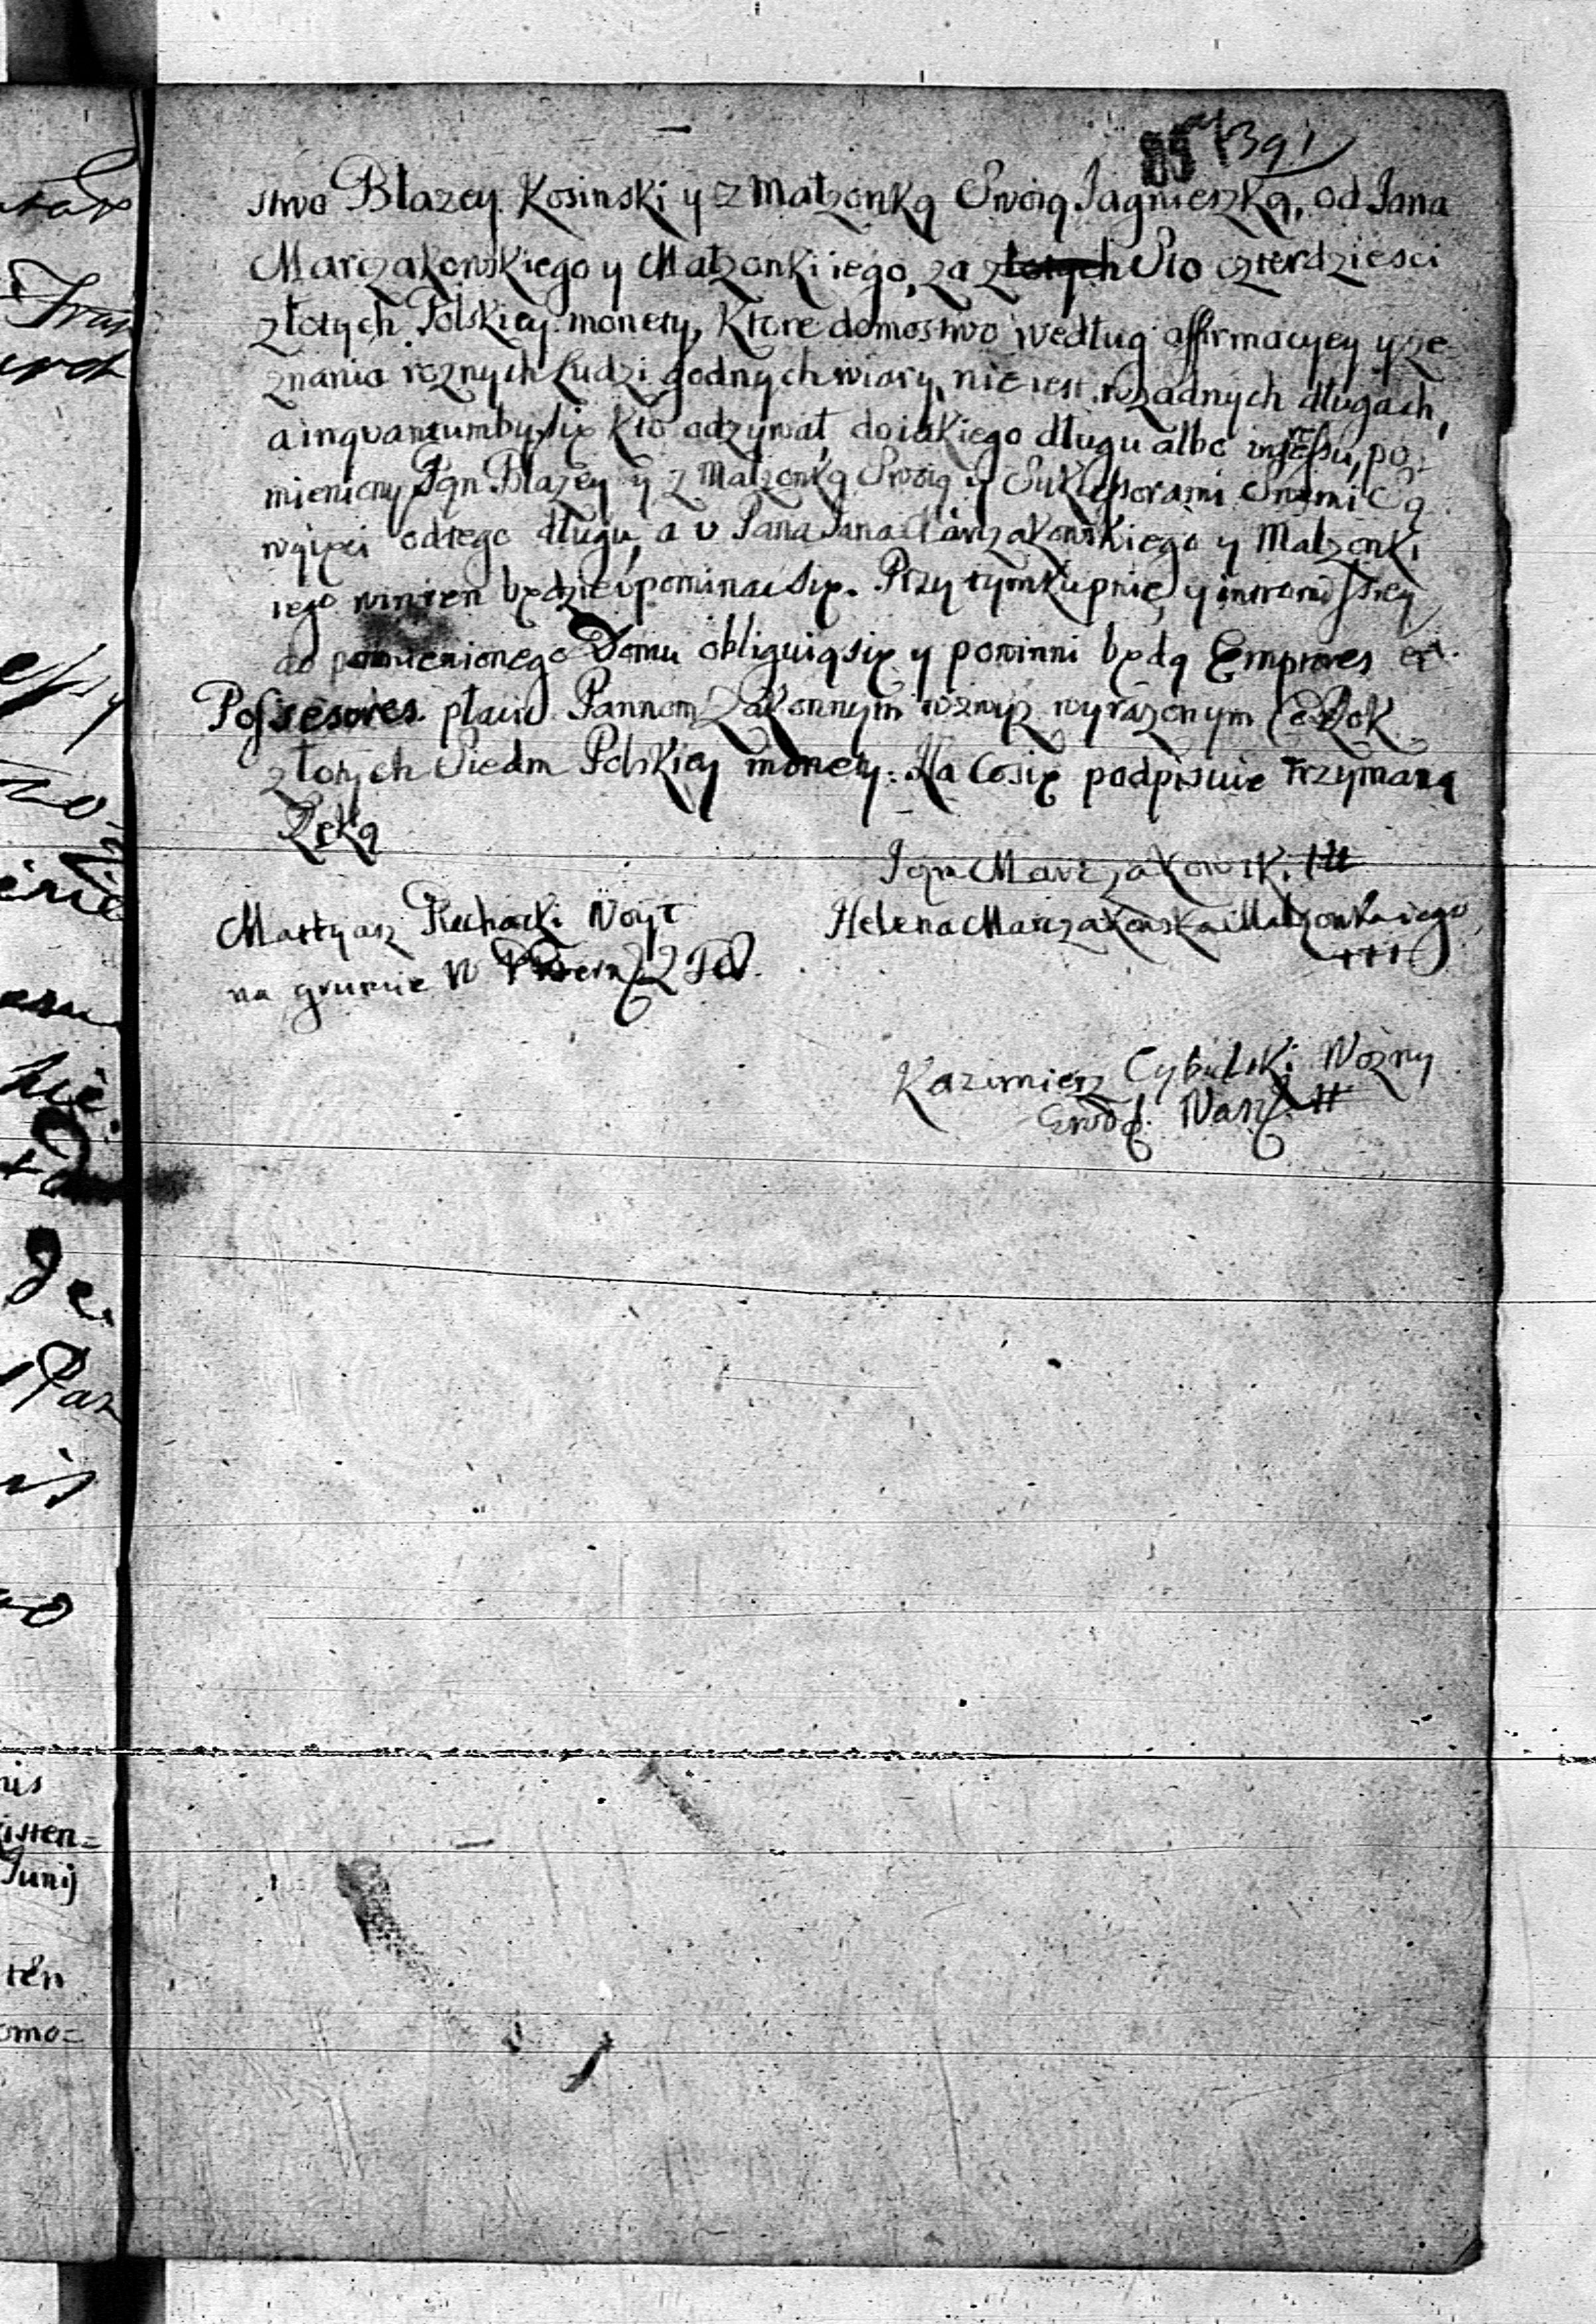 391
stwo Błazey Kosinski y z Małzonką Swoią Jagnieszką, od Jana
Marczakowskiego y Małzonki iego, za złotych Sto czterdziesci
złotych Polskiey monety, Ktore domostwo według affirmacyey y ze-
znania roznych Ludzi godnych wiary, nie iest w zadnych długach,
a inqvantumby się kto odzywał do iakiego długu albo, po-
mieniony Pan Błazey y z Małzonką Swoią y Sukcessorami Swemi
odtego długu, a v Pana Jana Marczakowskiego y Małzonki
iego winien będzie vpominac się. Przy tym kupnie, y
do pomienionego Domu obliguią się y powinni będą Emptores et
Possessores płacic Pannom Zakonnym wzwyz wyrazonym Co Rok
złotych Siedm Polskiey monety. Na Co się podpisuie trzymaną
Ręką
Jan Marczakowski ++
Martyasz Woyt
Helena Marczakowska Małzonka iego
+++
na gruncie W
Kazimierz Cybulski Wozny